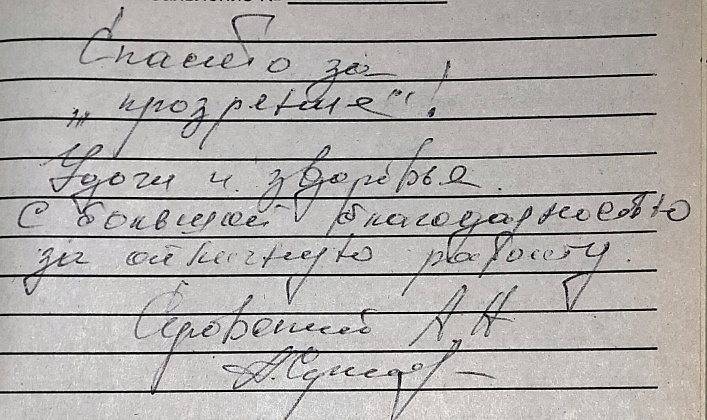 Спасибо за
„прозрение"!
Удачи и здоровья.
С большой благодарностью
за отличную работу.
А Н